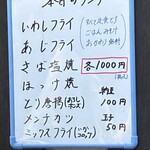 本日のランチ
いわしフライ
あじフライ
さば塩焼
ほっけ焼
とり唐揚
メンチカツ
ミックスフライ
すべて定食で
ごはんみそ汁
おかわり無料
各1000円
(税込)
納豆
100円
玉子
50円